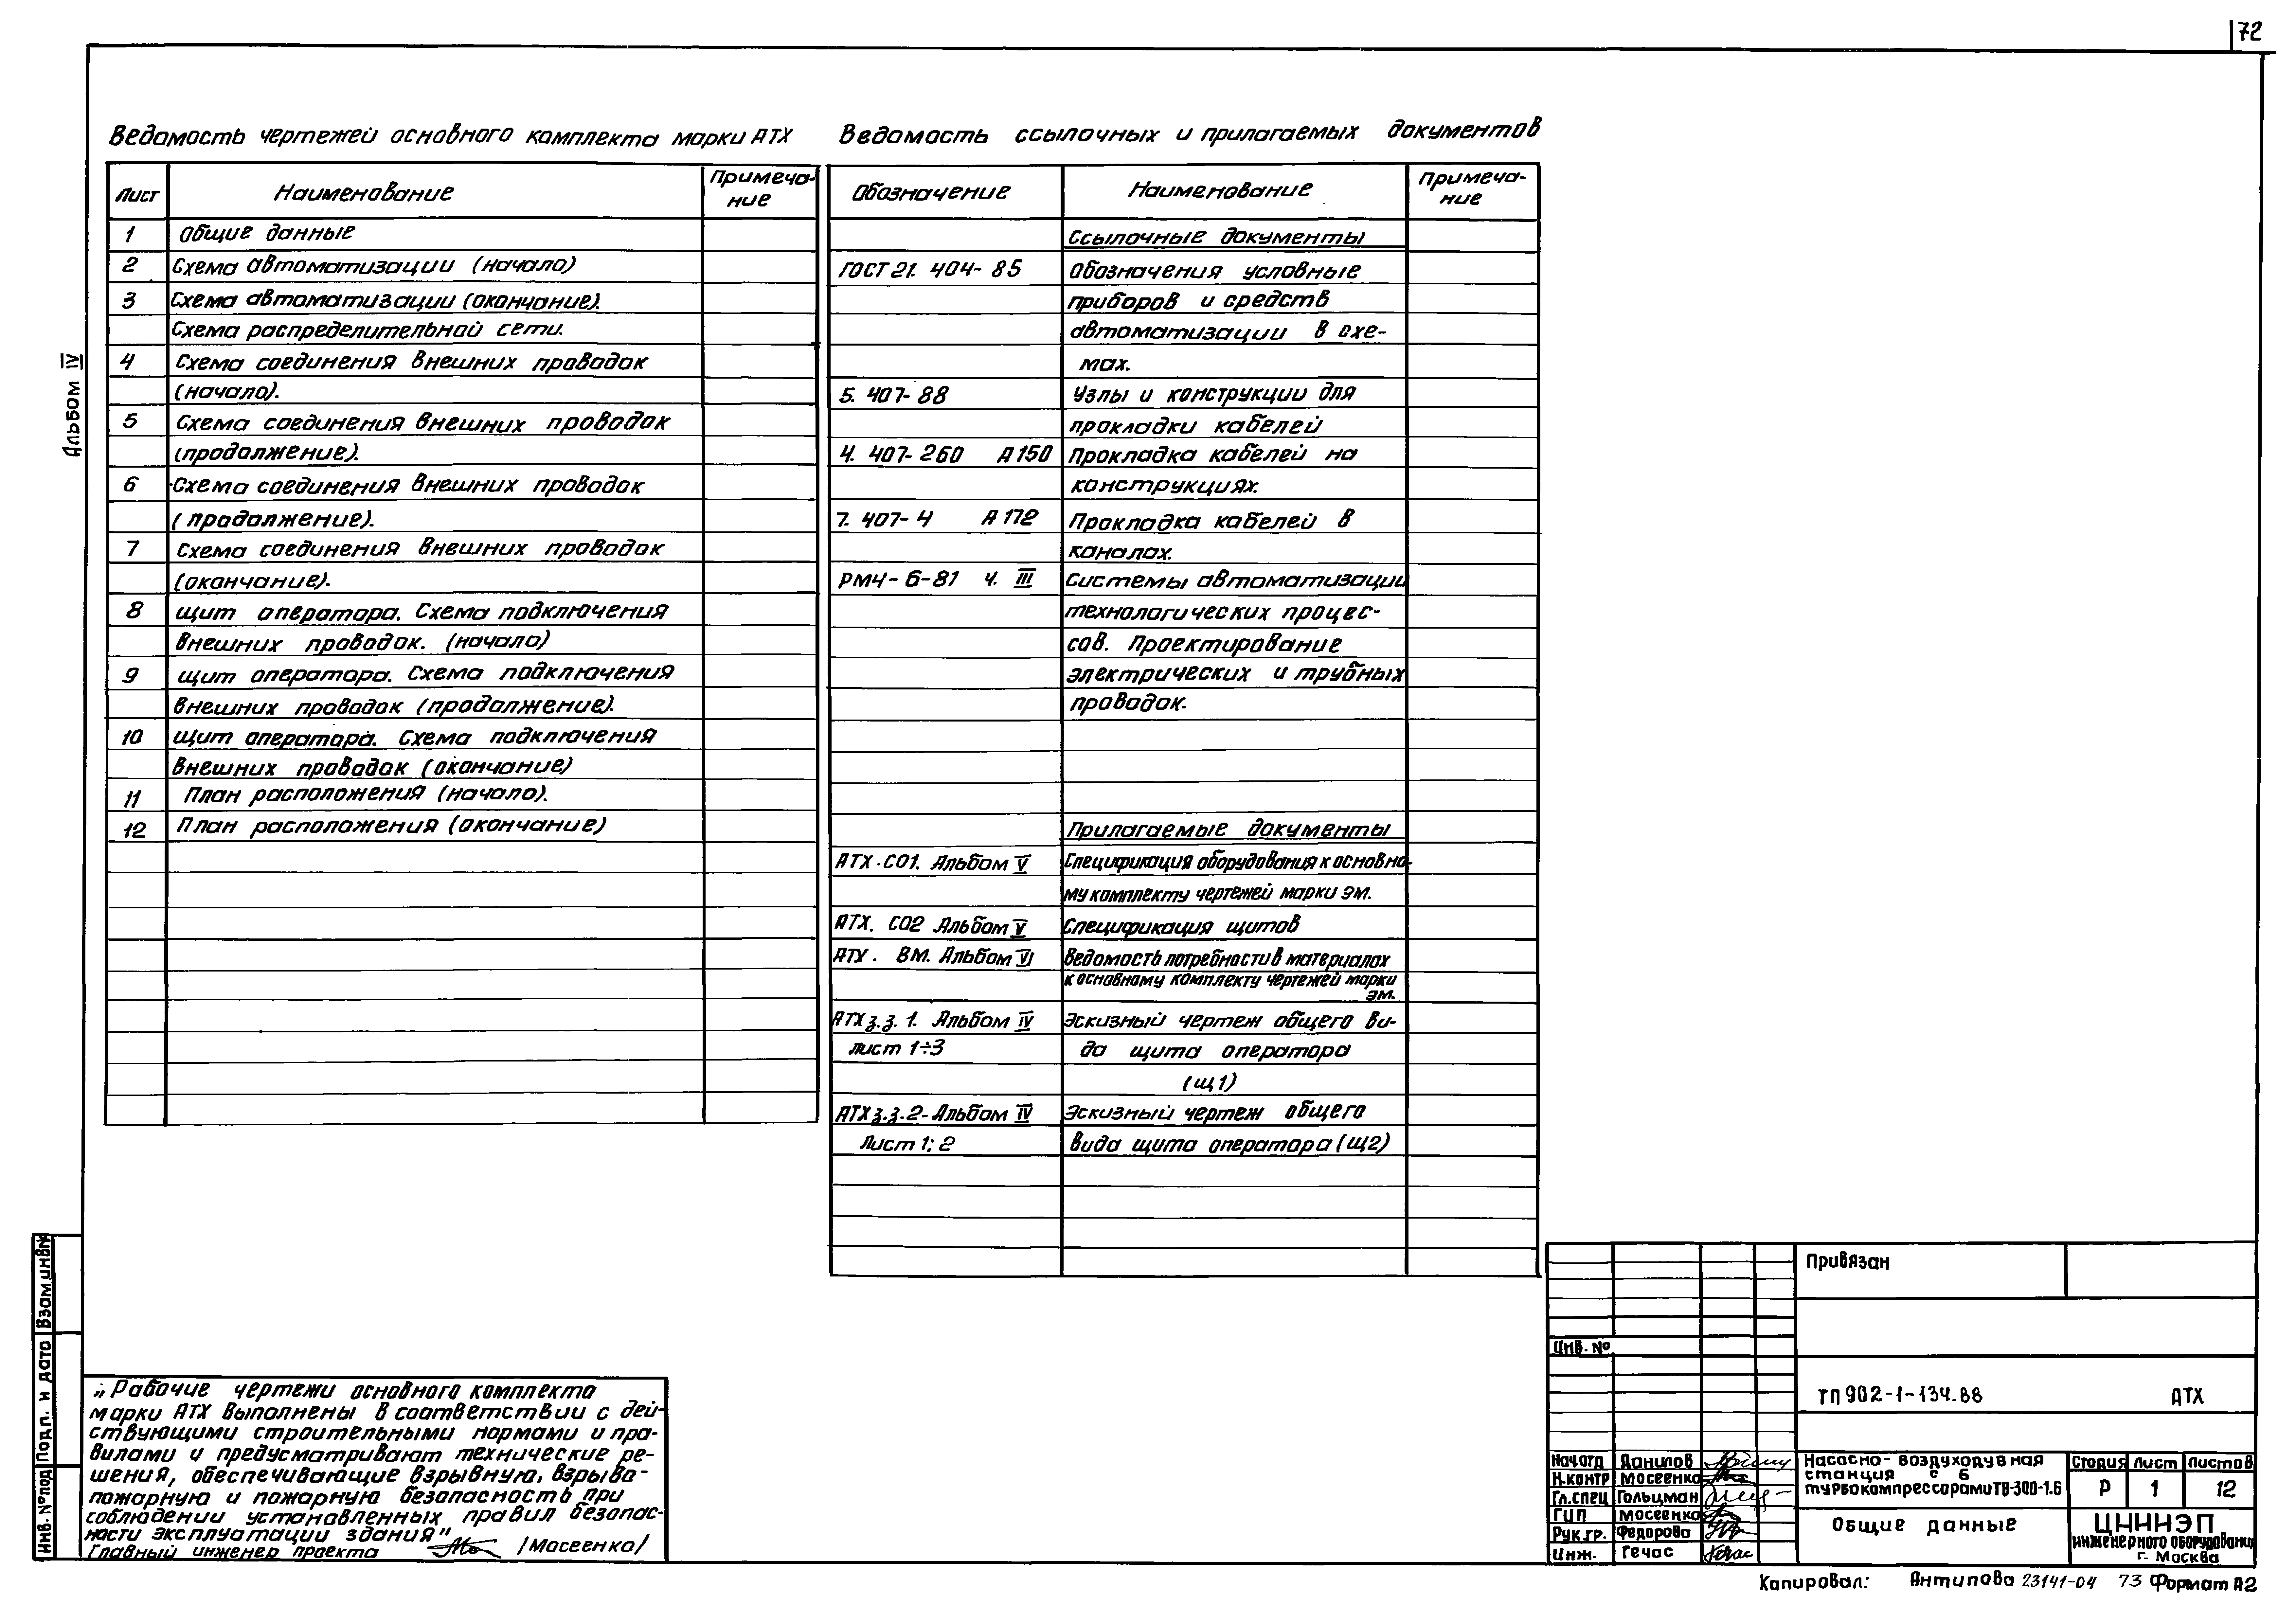 72
Альбом IV
Ведомость чертежей основного комплекта марки АТХ
Лист Наименование Примеча-
ние
1 Общие данные
2 Схема автоматизации (начало)
3 Схема автоматизации (окончание).
Схема распределительной сети.
4 Схема соединения внешних проводок
(начало).
5 Схема соединения внешних проводок
(продолжение).
6 Схема соединения внешних проводок
(продолжение).
7 Схема соединения внешних проводок
(окончание).
8 Щит оператора. Схема подключения
внешних проводок. (начало)
9 Щит оператора. Схема подключения
внешних проводок (продолжение).
10 Щит оператора. Схема подключения
внешних проводок (окончание)
11 План расположения (начало).
12 План расположения (окончание)
Ведомость ссылочных и прилагаемых документов
Обозначение Наименование Примеча-
ние
Ссылочные документы
ГОСТ 21. 404- 85 Обозначения условные
приборов и средств
автоматизации в схе-
мах.
5. 407- 88 Узлы и конструкции для
прокладки кабелей
4. 407- 260 А 150 Прокладка кабелей на
конструкциях.
7. 407- 4 А 172 Прокладка кабелей в
каналах.
РМ4- 6-81 ч. III Системы автоматизации
технологических процес-
сов. Проектирование
электрических и трубных
проводок.
Прилагаемые документы
АТХ. СО1. Альбом V Спецификация оборудования к основно-
му комплекту чертежей марки ЭМ.
АТХ. СО2 Альбом V Спецификация щитов
АТХ. ВМ. Альбом VI Ведомость потребности в материалах
к основному комплекту чертежей марки
ЭМ.
АТХ з.з. 1. Альбом IV Эскизный чертеж общего ви-
лист 1÷3 да щита оператора
(щ1)
АТХ з.з.2- Альбом IV Эскизный чертеж общего
Лист 1; 2 вида щита оператора (щ2)
„Рабочие чертежи основного комплекта
марки АТХ выполнены в соответствии с дей-
ствующими строительными нормами и пра-
вилами и предусматривают технические ре-
шения, обеспечивающие взрывную, взрыво-
пожарную и пожарную безопасность при
соблюдении установленных правил безопас-
ности эксплуатации здания"
Главный инженер проекта /Мосеенко/
Взам.инв№
Подп. и дата
Инв.№под
Привязан
Инв. №
ТП 902-1-134.88 АТХ
Нач.отд Данилов
Н.контр Мосеенко
Гл.спец Гольцман
ГИП Мосеенко
Рук.гр. Федорова
Инж. Гечас
Насосно- воздуходувная
станция с 6
турбокомпрессорами ТВ-300-1.6
Стадия Лист Листов
Р 1 12
Общие данные
ЦНИИЭП
инженерного оборудования
г. Москва
Копировал: Антипова 23141-04 73 Формат А2